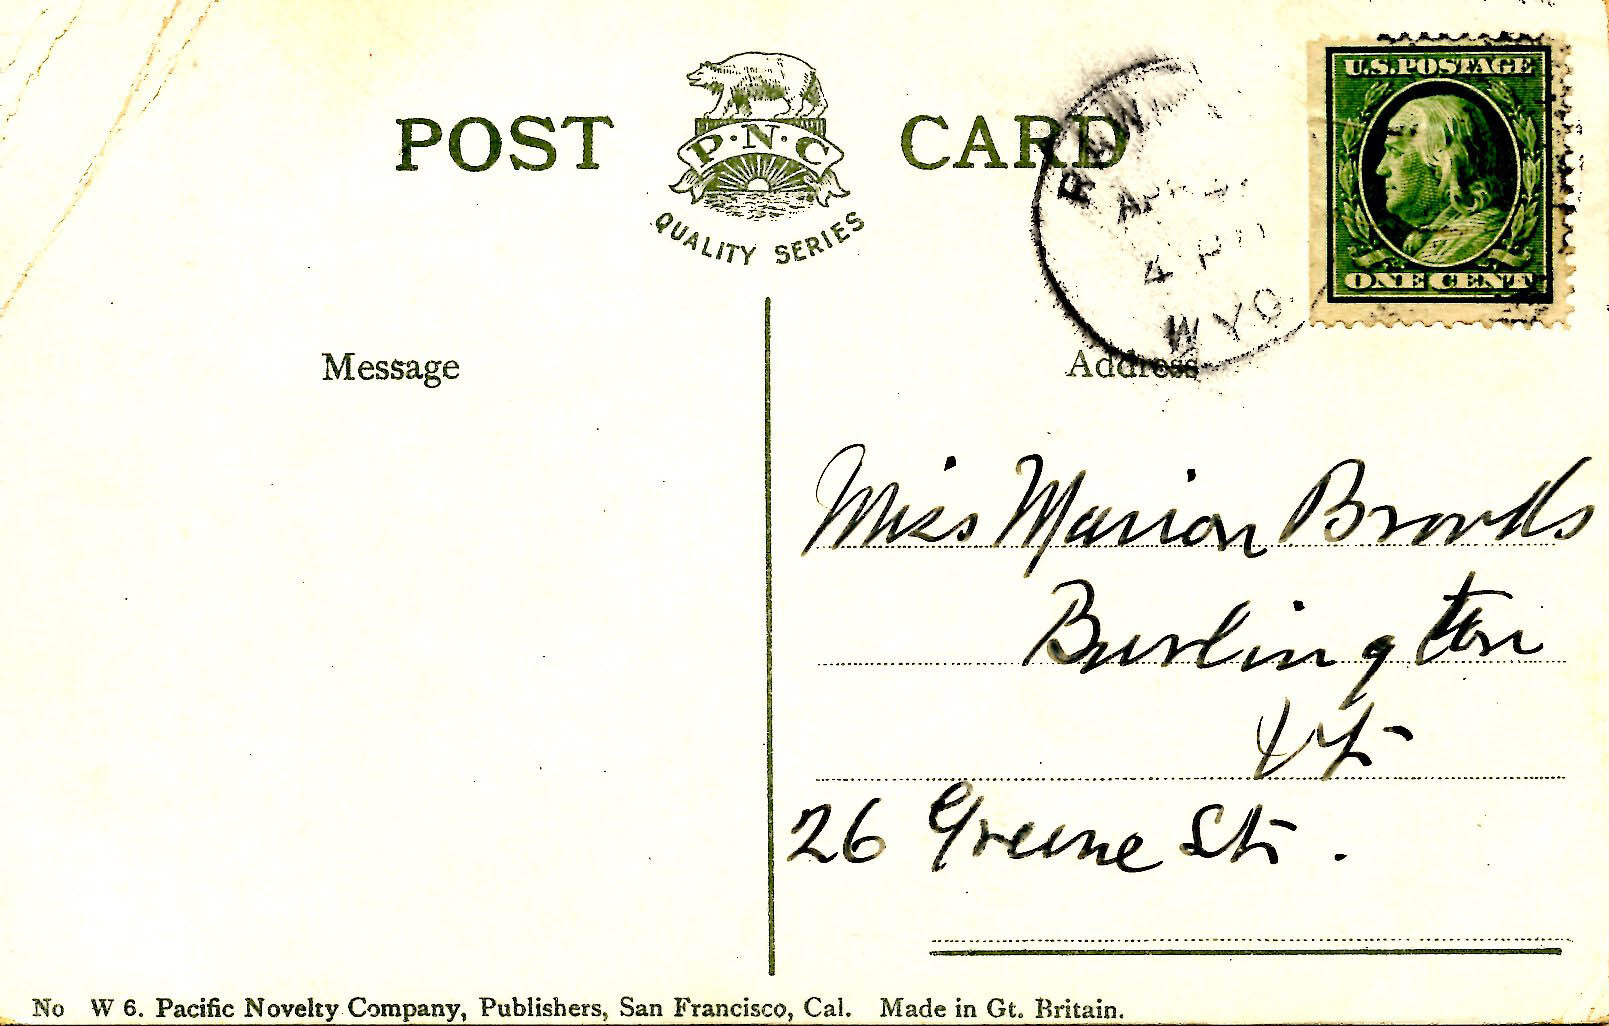 POST CARD
P·N·C
QUALITY SERIES
U.S.POSTAGE
ONE CENT
APR
4 P
WYO.
Message
Address
Miss Marion Brooks
Burlington
Vt
26 Greene St.
No W 6. Pacific Novelty Company, Publishers, San Francisco, Cal. Made in Gt. Britain.